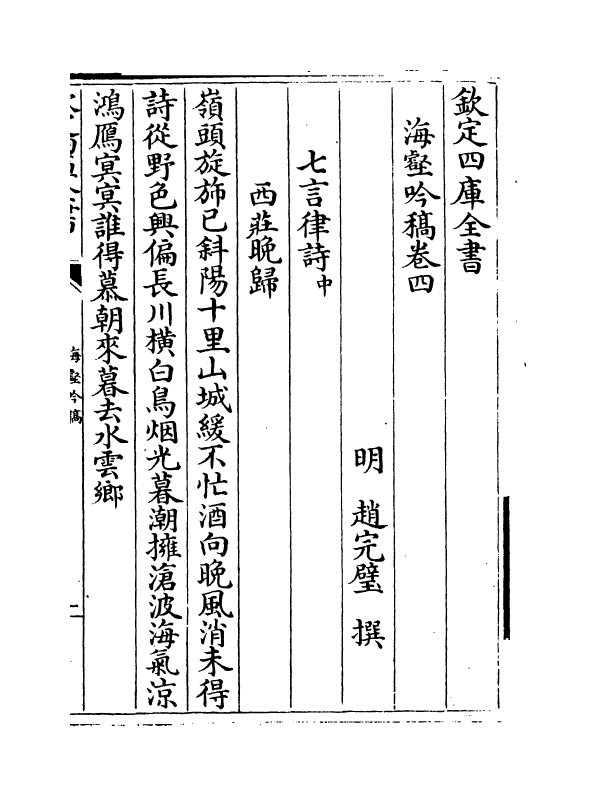 欽定四庫全書
海壑吟稿卷四
明 趙完璧 撰
七言律詩中
西莊晚歸
嶺頭旋斾已斜陽十里山城緩不忙酒向晚風消未得
詩從野色興偏長川橫白鳥烟光暮潮擁滄波海氣涼
鴻鴈冥冥誰得慕朝來暮去水雲鄉
海壑吟稿